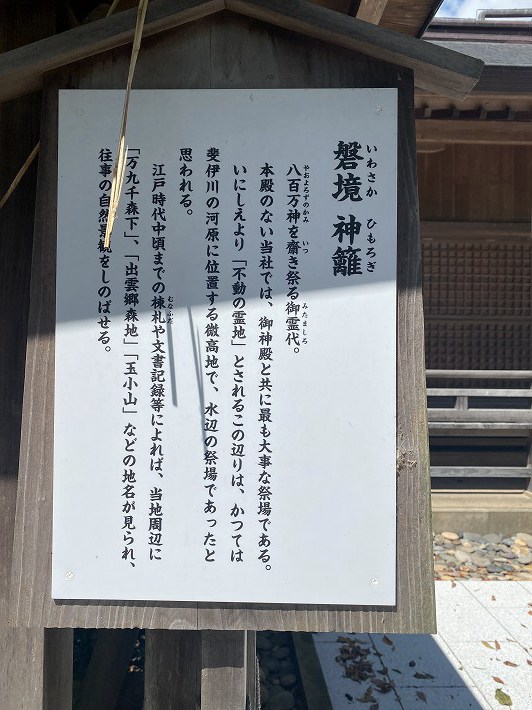 いわさか ひもろぎ
磐境 神籬
やおよろずのかみ いつ みたましろ
八百万神を齋き祭る御霊代。
本殿のない当社では、御神殿と共に最も大事な祭場である。
いにしえより「不動の霊地」とされるこの辺りは、かつては
斐伊川の河原に位置する微高地で、水辺の祭場であったと
思われる。
むなふだ
江戸時代中頃までの棟札や文書記録等によれば、当地周辺に
「万九千森下」、「出雲郷森地」「玉小山」などの地名が見られ、
往事の自然景観をしのばせる。